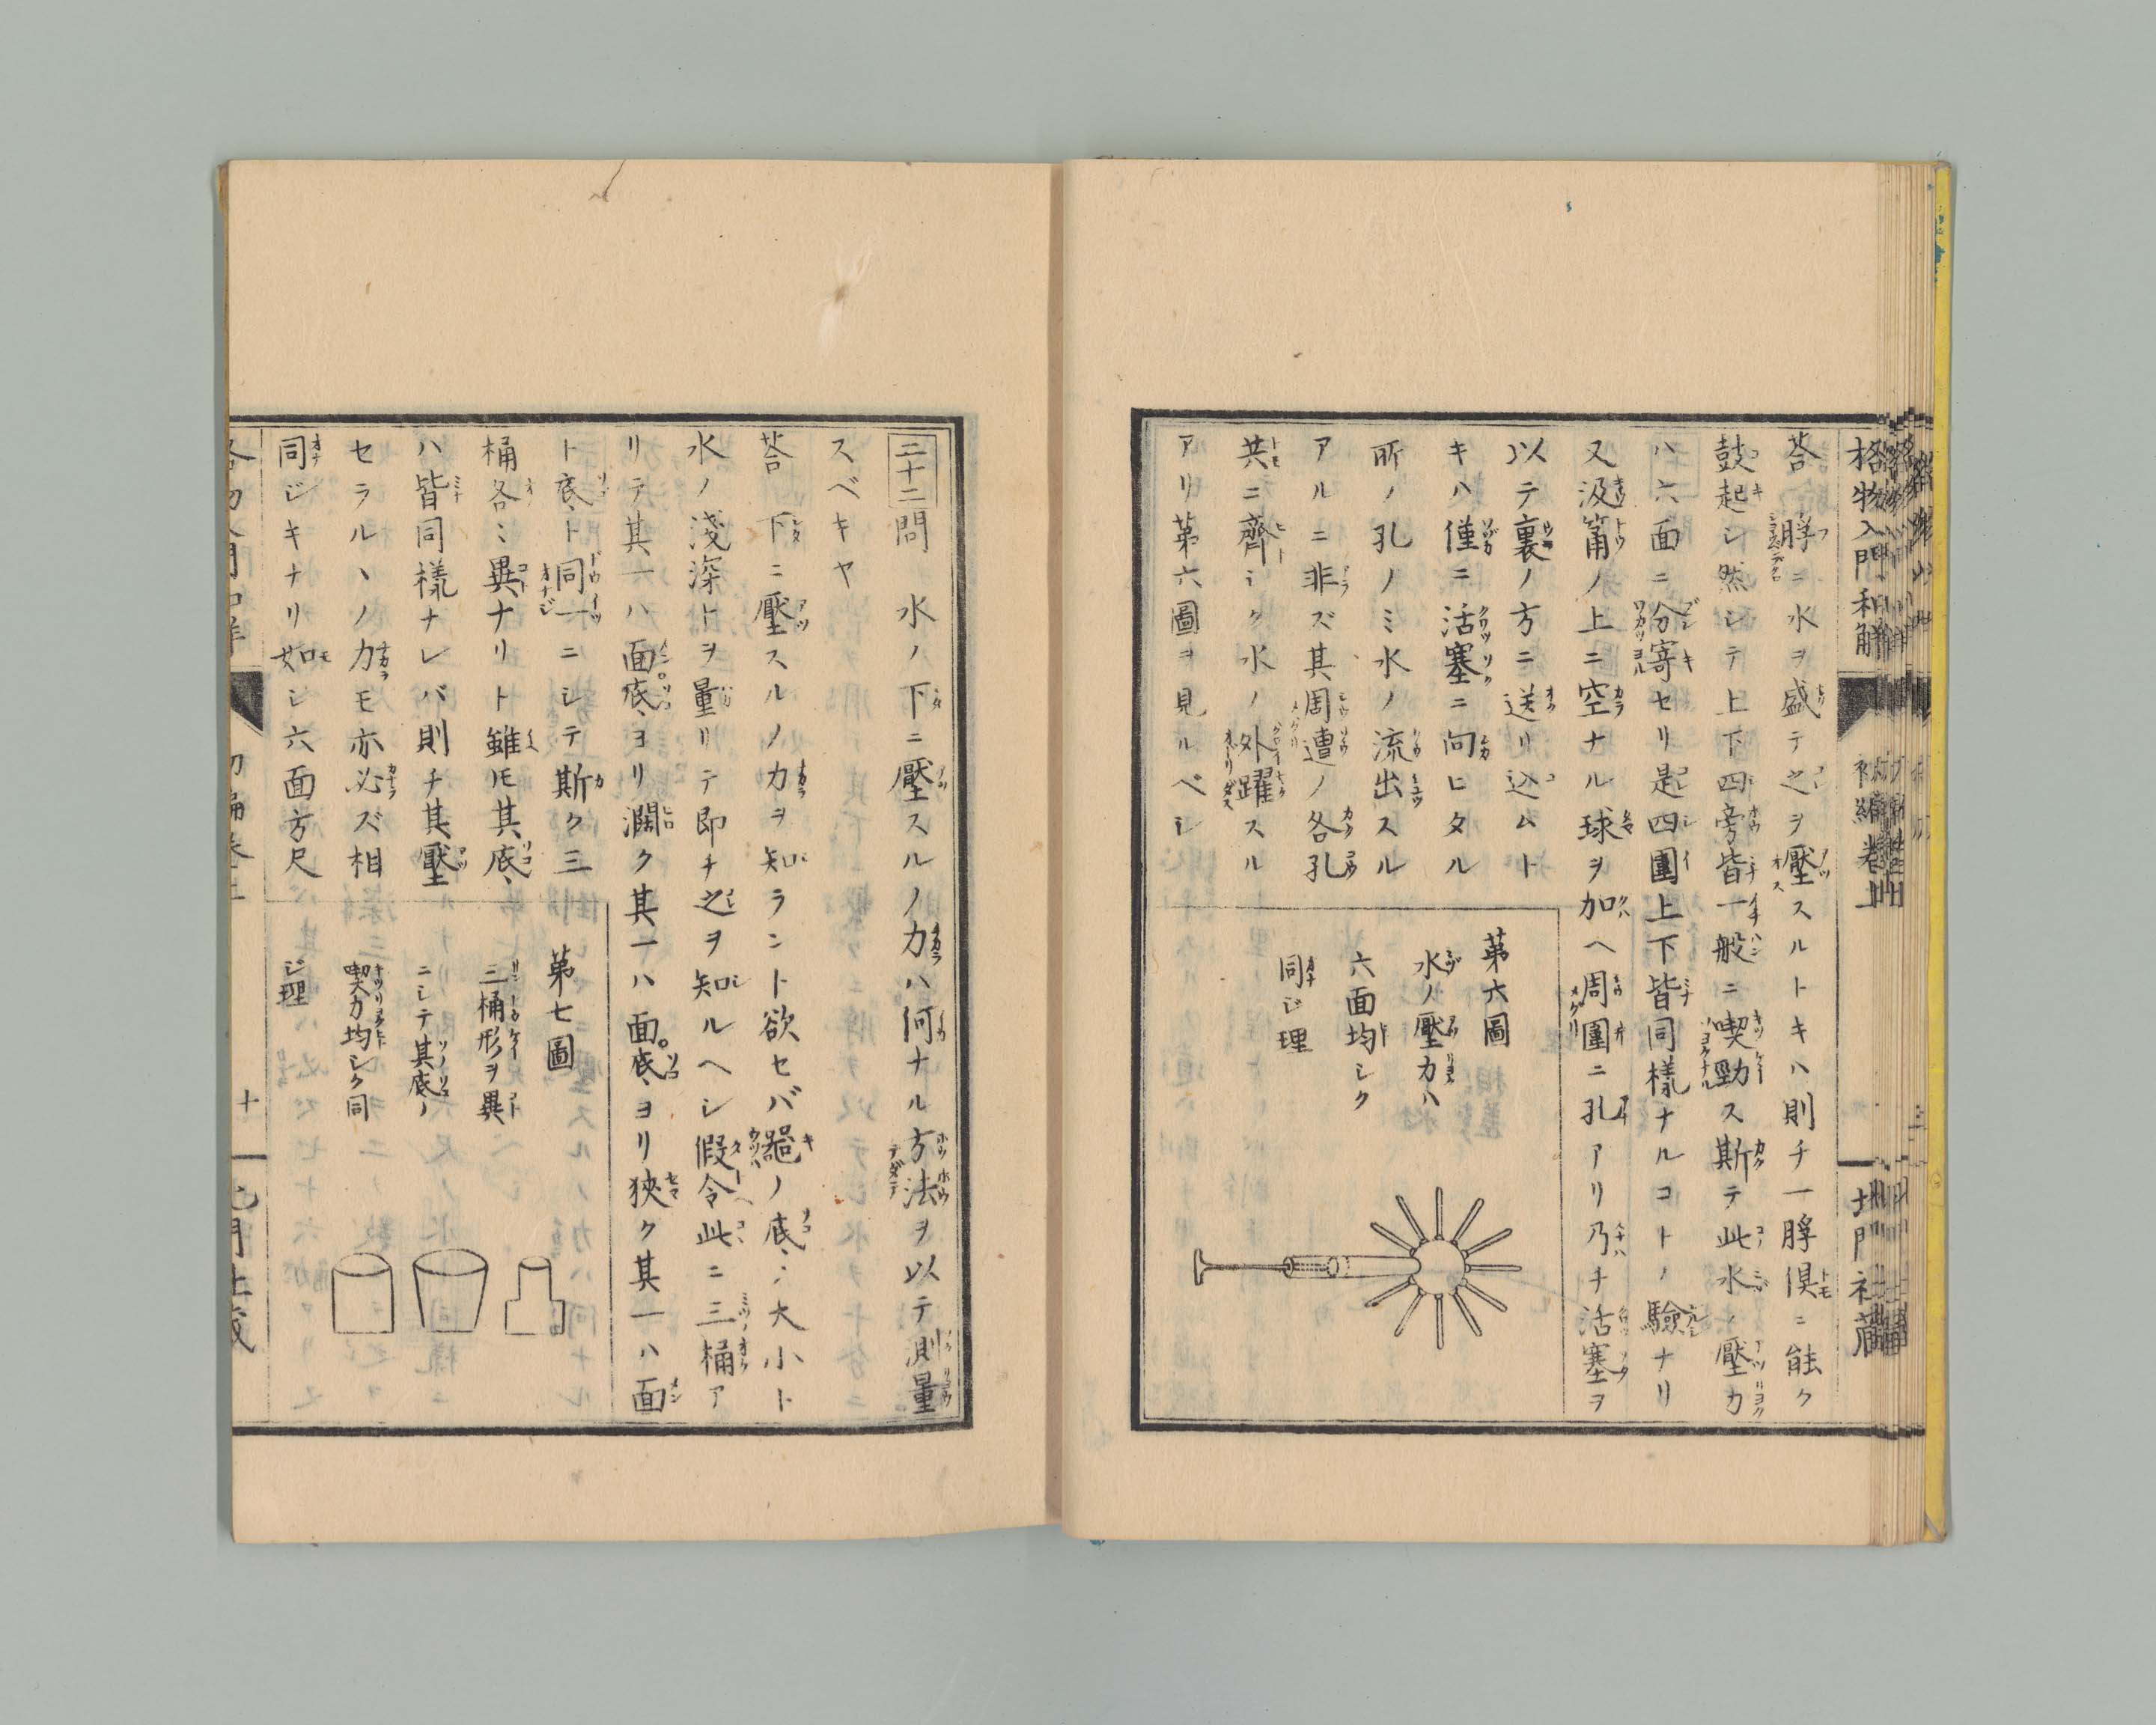 格物入門和解 初編卷上 北門社藏
荅 脬ニ水ヲ盛テ之ヲ壓スルトキハ則チ一脬俱ニ能ク
鼓起シ然シテ上下四旁皆一般ニ喫勁ス斯テ此水ノ壓力
ハ六面ニ分寄セリ是四圍上下皆同樣ナルコトノ驗ナリ
又汲筩ノ上ニ空ナル球ヲ加ヘ周圍ニ孔アリ乃チ活塞ヲ
以テ裏ノ方ニ送リ込ムト
キハ僅ニ活塞ニ向ヒタル
所ノ孔ノミ水ノ流出スル
アルニ非ズ其周遭ノ各孔
共ニ齊シク水ノ外躍スル
アリ第六圖ヲ見ルベシ
第六圖
水ノ壓力ハ
六面均シク
同ジ理
二十二 問 水ノ下ニ壓スルノ力ハ何ナル方法ヲ以テ測量
スベキヤ
荅 下ニ壓スルノ力ヲ知ラント欲セバ噐ノ底ノ大小ト
水ノ淺深トヲ量リテ即チ之ヲ知ルヘシ假令此ニ三桶ア
リテ其一ハ面底ヨリ濶ク其一ハ面底ヨリ狹ク其一ハ面
ト底ト同一ニシテ斯ク三
桶各〻異ナリト雖𪜈其底
ハ皆同樣ナレバ則チ其壓
セラルヽノ力モ亦必ズ相
同ジキナリ如シ六面方尺
第七圖
三桶形ヲ異
ニシテ其底ノ
喫力均シク同
ジ理
十